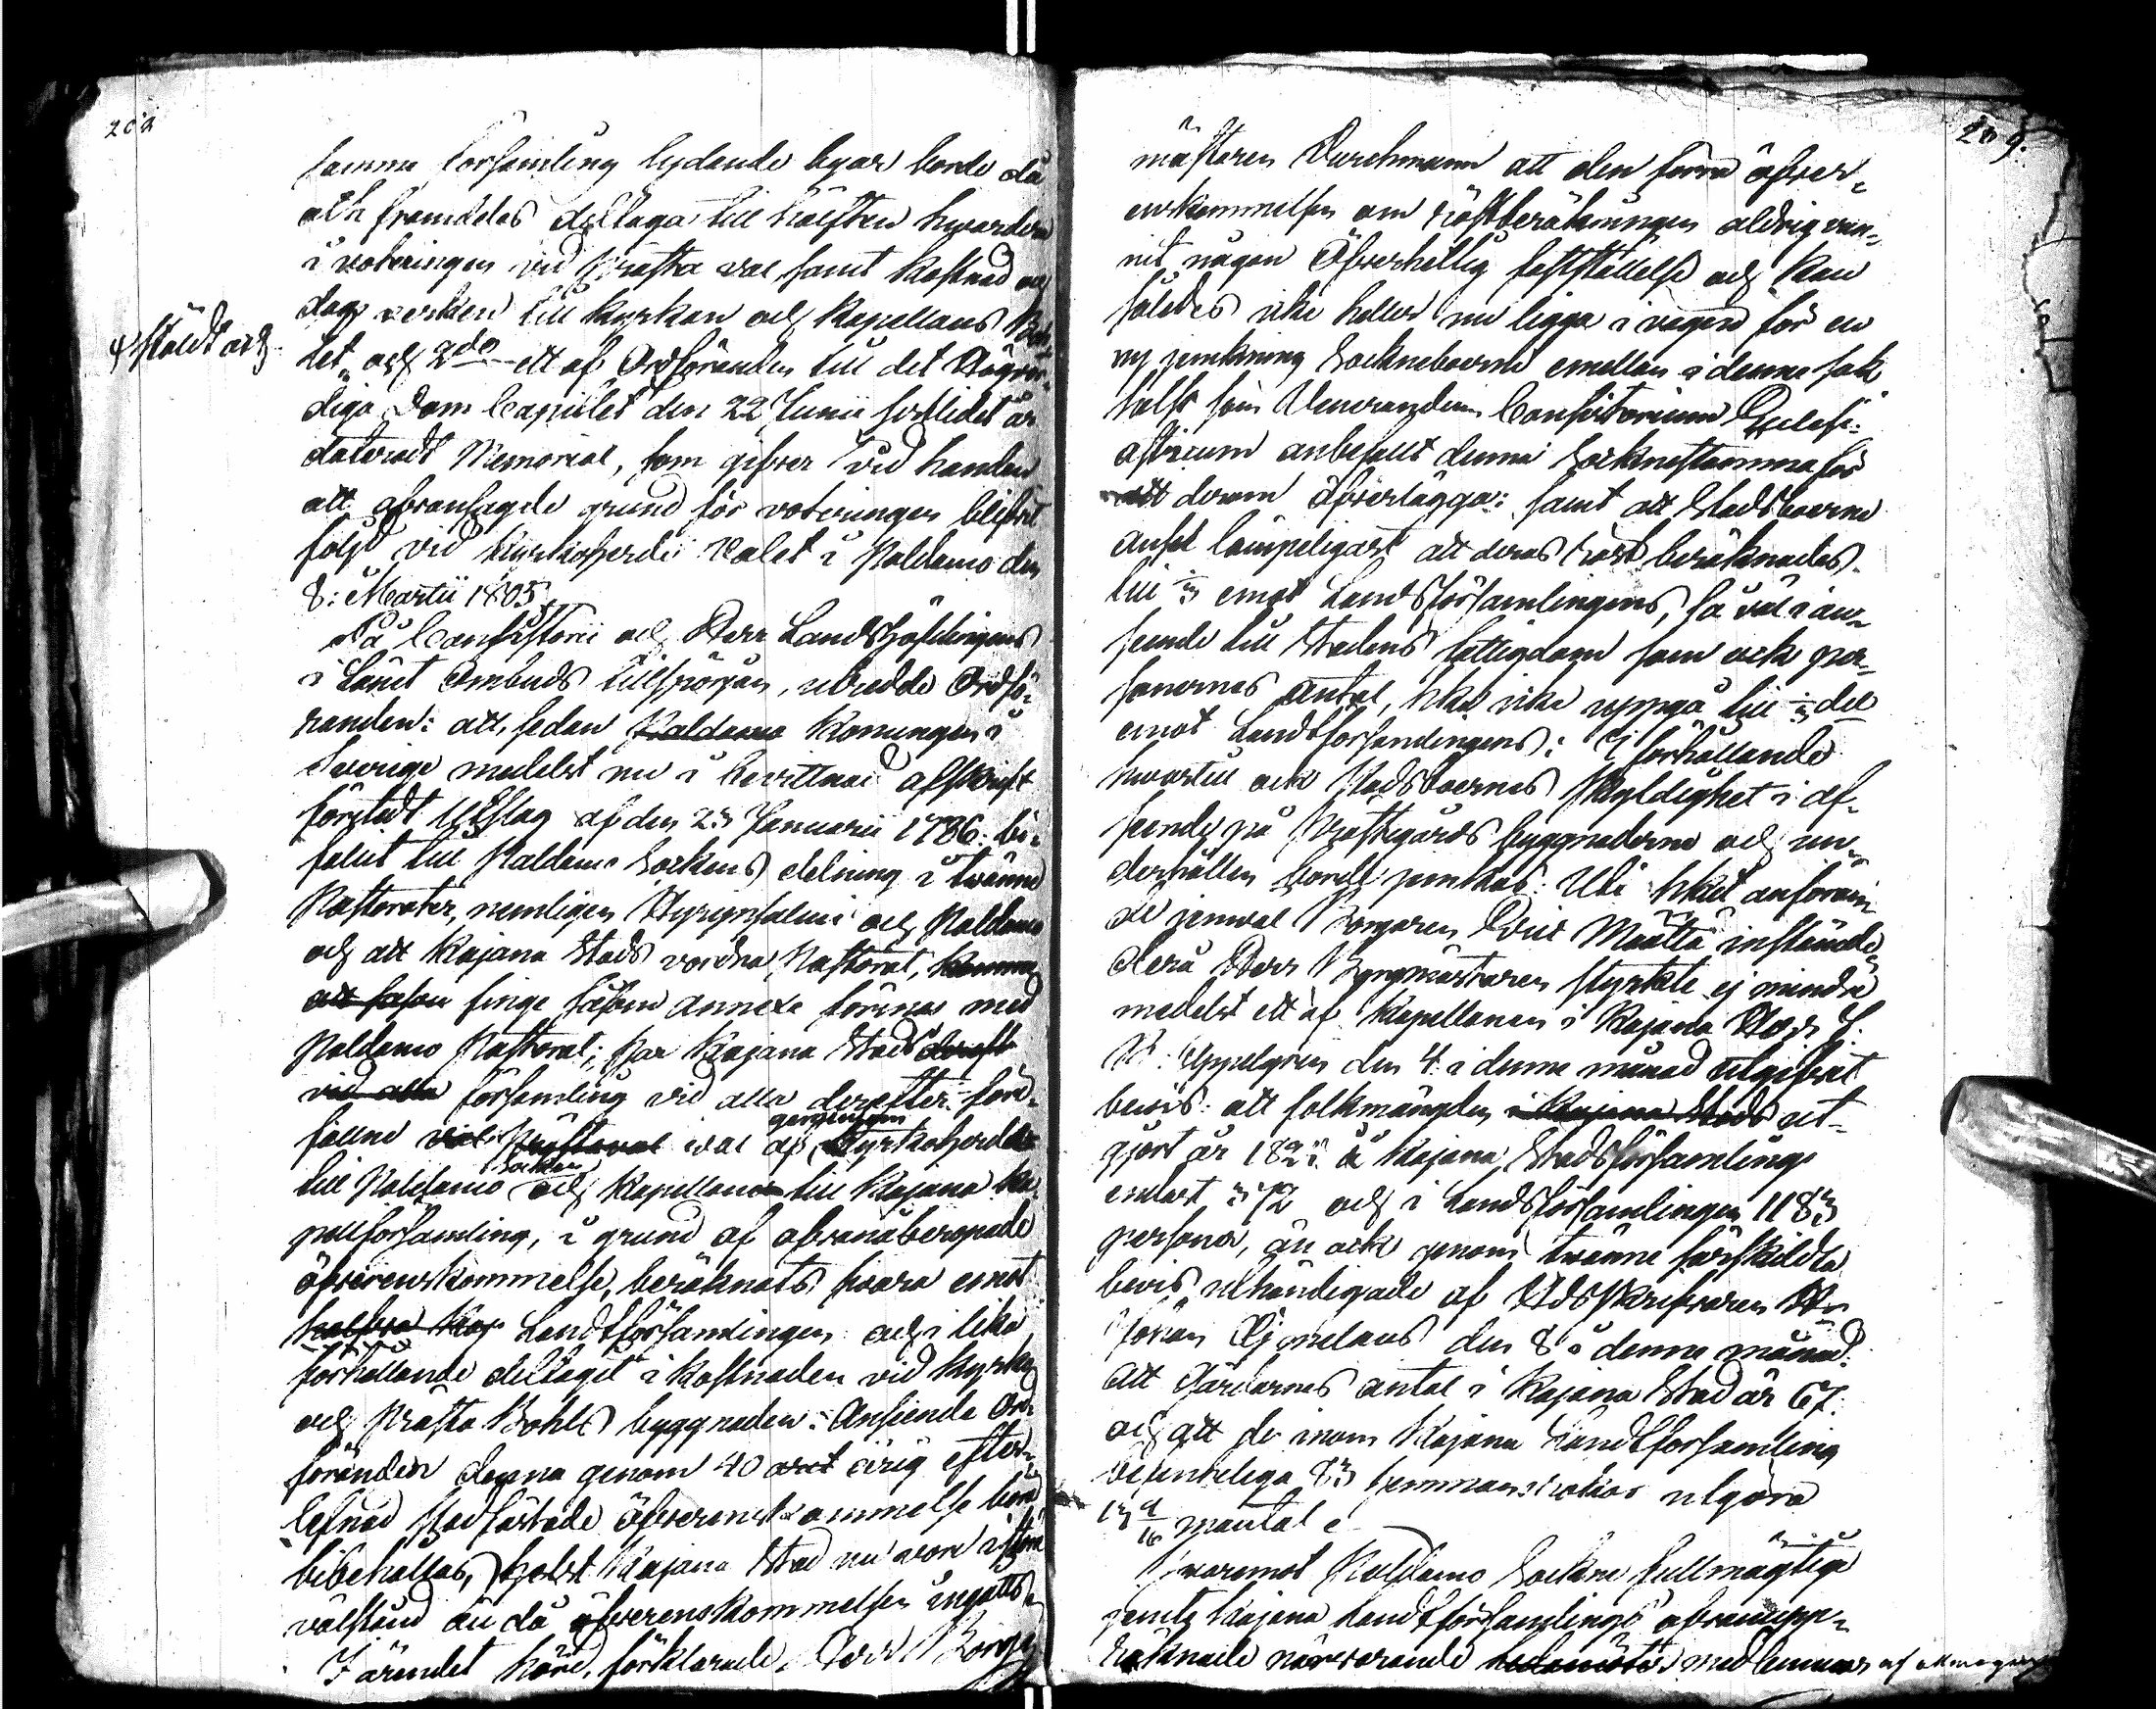 208
samma Församling lydande byar borde då
och framdeles deltaga till hälften hwardera
i voteringen vid Prästa val samt kostnad och
dags verken till kyrkan och kapellans Bohlet
ställdt och
let, och 2do ett af Ordföranden till det Högvör-
diga Dom Capitlet den 22 Junii sistlidet år
dateradt Memorial, som gifver vid handen
att ofvansagde grund för voteringen blifvit
följd vid Kyrkoherde Valet i Paldamo den
8: Martii 1805.
På Consistorii och Herr Landshöfdingens
i Länet Ombuds tillfrågan, utredde Ordfö-
randen: att, sedan Paldamo Konungen i
Sverige medelst nu i bevittnad afskrift
förstedt Utslag af den 23 Januarii 1786. bi-
fallit till Paldamo Sockens delning i tvänne
Pastorater, nemligen Hyrynsalmi och Paldamo
och att Kajana Stads vordna Pastorat, komma
att såsom finge såsom annexe förenas med
Paldamo Pastorat; har Kajana Stads dereft
vid alla församling vid alla derefter före-
fallne val af Kyrkoherdar
gemensam
till Paldamo Socken och Kapellaner till Kajana Ka-
pellförsamling, i grund af ofvanåberopade
öfverenskommelse, beräknats svara emot
halfva Kap Landtförsamlingen och i lika
förhållande deltagit i kostnaden vid kyrko
och Prästa Bohls byggnaden: Ansende Ord-
föranden denna genom 40 årig efter-
lefnad stadfästade öfverenskommelse böra
bibehållas, helst Kajana Stad nu vore i större
välstånd än då öfverenskommelsen ingåtts.
I ärendet hörd, förklarade Herr Borge
209.
mästaren Durchmann att den förra öfver-
enskommelsen om röstberäkningen aldrig vun-
nit någon Öfverhetlig fastställelse och kan
således icke heller nu ligga i vägen för en
ny jemkning Sockneboerne emellan i denna sak
helst som Venerandum Consistorium Ecclesi-
asticum anbefallt denna Sockenstämma för
att derom öfverlägga: samt att Stadsboerne
anse lämpeligast att deras röst beräknades
till ⅓ emot Landsförsamlingens, så väl i an-
seende till Stadens fattigdom som ock per-
sonernes antal, hka icke uppgå till ⅓ del
emot Landtförsamlingens: I förhållande
hvartill ock Stadsboernes skyldighet i af-
seende på Prästegårds byggnaderne och un-
derhållen borde jemkas: Uti hket anföran-
de jemväl Borgaren Eric Määttä instämde
dera Herr Borgmästaren styrkte ej mindre
medelst ett af Kapellanen i Kajana Herr J.
W. Appelgren den 4. i denna månad utgifvit
bevis: att folkmängden i Kajana Stads ut-
gjort år 1825. i Kajana Stadsförsamling
endast 372 och i Landsförsamlingen 1183
personer, än ock genom tvänne särskildta
bevis, uthändigade af Hdsskrifvaren Hr
Johan Cajanelaus den 8 i denne månad:
att Gårdarnes antal i Kajana Stad är 67.
och att de inom Kajana Landtförsamling
befinteliga 83 hemmans rökar utgöra
13 9/16 mantal.
Hvaremot Paldamo Sockne fullmägtige
jemte Kajana Landtförsamlings ofvanupp-
räknade närvarande ledamöter medlemmar af